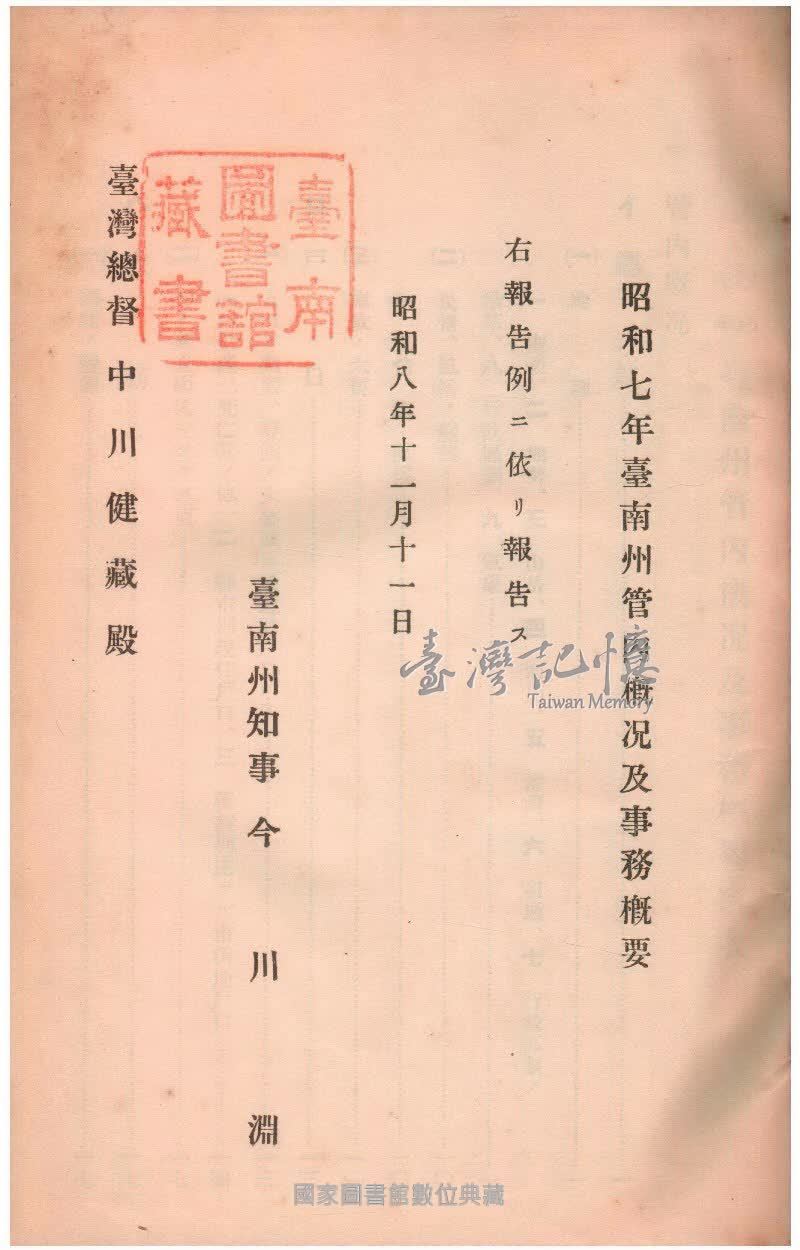 昭和七年臺南州管內概況及事務概要
右報告例ニ依リ報告ス
昭和八年十一月十一日
臺南州知事今川淵
臺灣總督中川健藏殿
臺南
圖書館
藏書
臺灣記憶
Taiwan Memory
國家圖書館數位典藏